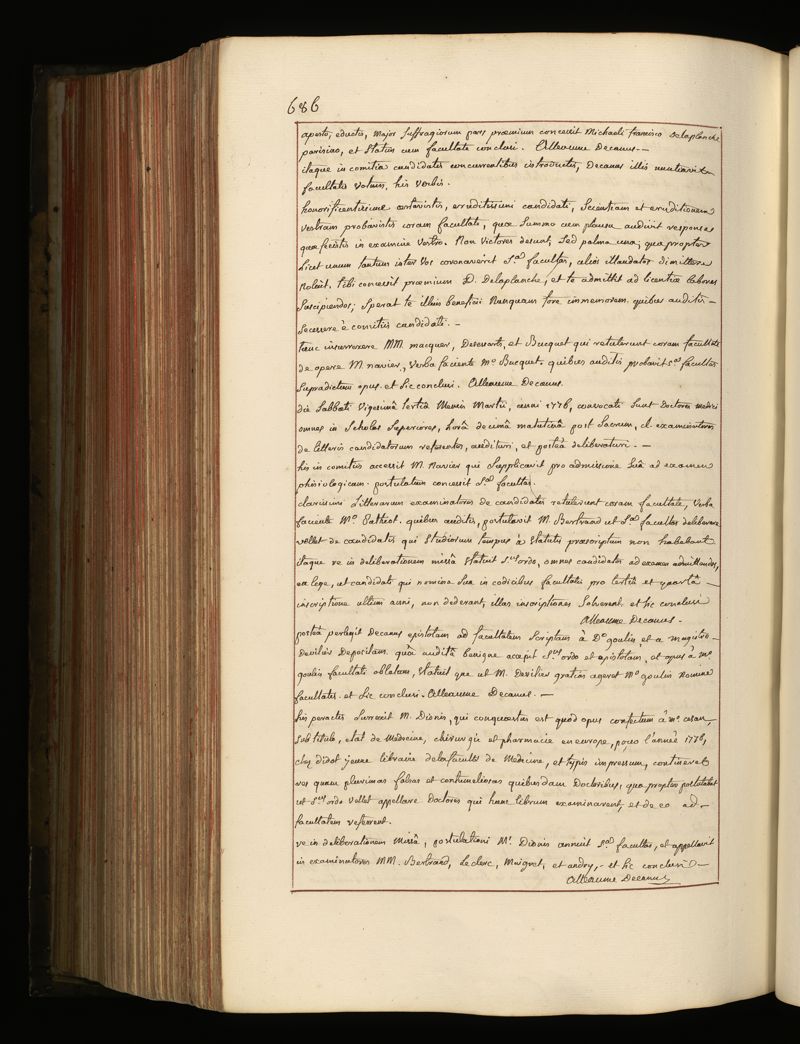 686
aperto, eductis, major suffragiorum pars præmium concessit Michaeli francisco Delaplanche
parisino, et statim cum facultate conclusi. Alleaume Decanus. —
itaque in comitia candidatis concurrentibus introductis, Decanus illis nuntiavit
facultatis votum, his verbis.
honorificentissime certavistis, erruditissimi candidati, Scientiam et erruditionem
vestram probavistis coram facultate, quæ Summo cum plausu audivit responsa
quæ fecistis in examine vestro. Non victores desunt, Sed palma una, quapropter
licet unum tantum inter vos coronaverit S.a facultas, alios illaudatos dimittere
noluit. tibi concessit præmium D. Delaplanche, et te admittit ad licentiæ labores
Suscipiendos; Sperat te illius beneficii nunquam fore immemorem. quibus auditis —
Secessere è comitiis candidati. —
tunc insurrexere MM. macquer, Desessarts, et Bucquet qui retulerunt coram facultate
de opere M. navier, verba faciente M.o Bucquet. quibus auditis probavit S.a facultas
Supradictum opus. et sic conclusi. Alleaume Decanus.
die Sabbati vigesimâ tertiâ Mensis Martii, anni 1776, convocati Sunt Doctores medici
omnes in Scholas Superiores, horâ decimâ matutinâ post Sacrum, cl. examinatores
de litteris candidatorum referentes, audituri, et posteà deliberaturi. —
his in comitiis accessit M. Navier qui Supplicavit pro admissione Suâ ad examen
phisiologicum. postulatum concessit S.a facultas.
clarissimi litterarum examinatores de candidatis retulerunt coram facultate, verba
faciente M.o Pathiot. quibus auditis, postulavit M. Bertrand ut S.a facultas deliberare
vellet de candidatis qui Studiorum tempus à Statutis præscriptum non habebant
itaque re in deliberationem missâ Statuit S.us ordo, omnes candidatos ad examen admittendos,
ea lege, ut candidati qui nomina Sua in codicibus facultatis pro tertiâ et quartâ —
inscriptione ultimi anni, non dederant, illas inscriptiones Solverent. et sic conclusi
Alleaume Decanus. —
posteà perlegit Decanus epistolam ad facultatem Scriptam à D.o goulin et a magistro —
Devillis Depositam. quâ auditâ benigne accepit S.us ordo et epistolam, et opus à m.o
goulin facultati oblatum, statuit que ut M. Devillis gratias ageret M.o goulin nomine
facultatis. et sic conclusi. Alleaume Decanus. —
his peractis Surrexit M. Dionis, qui conquestus est quod opus confectum à m.o
Sub titulo, etat de Médecine, chirurgie et pharmacie en europe, pour l'année 1776,
chez didot jeune libraire de la faculté de Médecine, et typis impressum, contineret
res quam plurimas falsas et contumeliosas quibusdam Doctoribus, qua propter postulabat
ut S.us ordo vellet appellare Doctores qui hunc librum examinarent, et de eo ad —
facultatem referrent.
re in deliberationem missâ, postulationi M.i Dionis annuit S.a facultas, et appellavit
in examinatores MM. Bertrand, Leclerc, Maigret, et andry, - et sic conclusi —
Alleaume Decanus